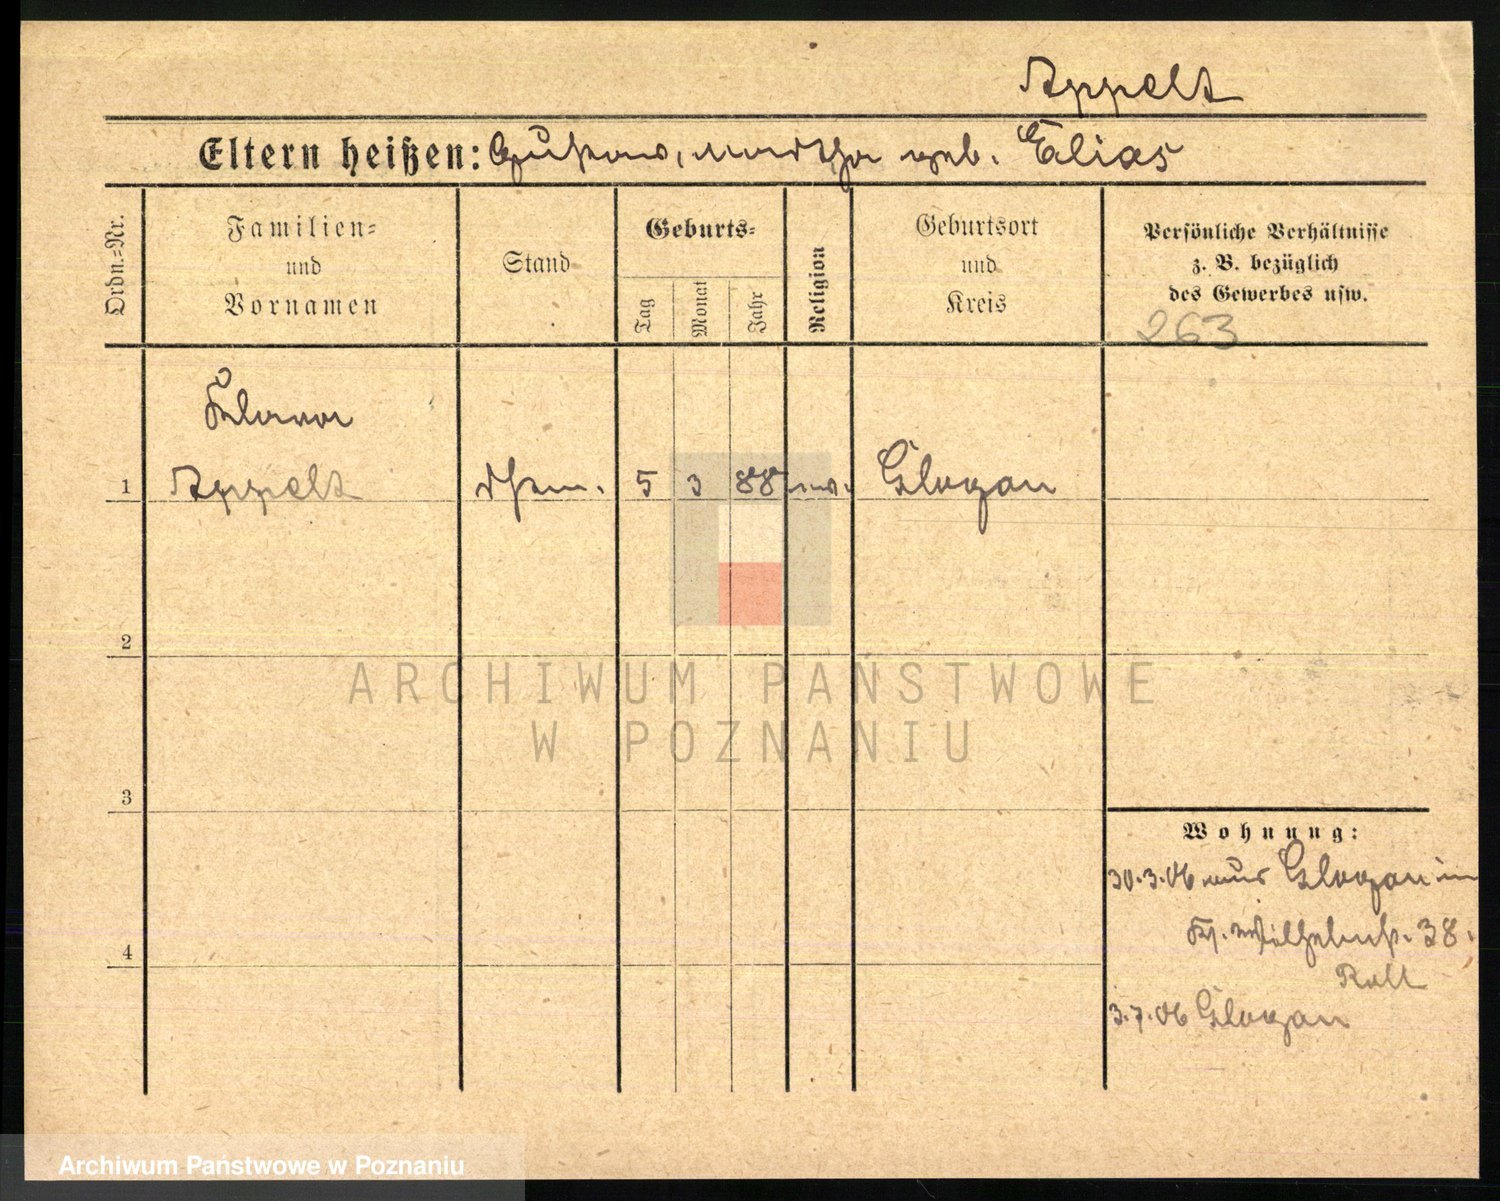 Appelt
Eltern heißen: Gustav, Martha geb. Elias
Ordn.-Nr.
Familien-
und
Vornamen
Stand
Geburts-
Tag
Monat
Jahr
Religion
Geburtsort
und
Kreis
Persönliche Verhältnisse
z. B. bezüglich
des Gewerbes usw.
263
Klara
1 Appelt 5 3 88 Glogau
2
3
4
Wohnung:
30.3.06 aus Glogau in
Wilhelmstr. 38.
3.7.06 Glogau
ARCHIWUM PAŃSTWOWE
W POZNANIU
Archiwum Państwowe w Poznaniu